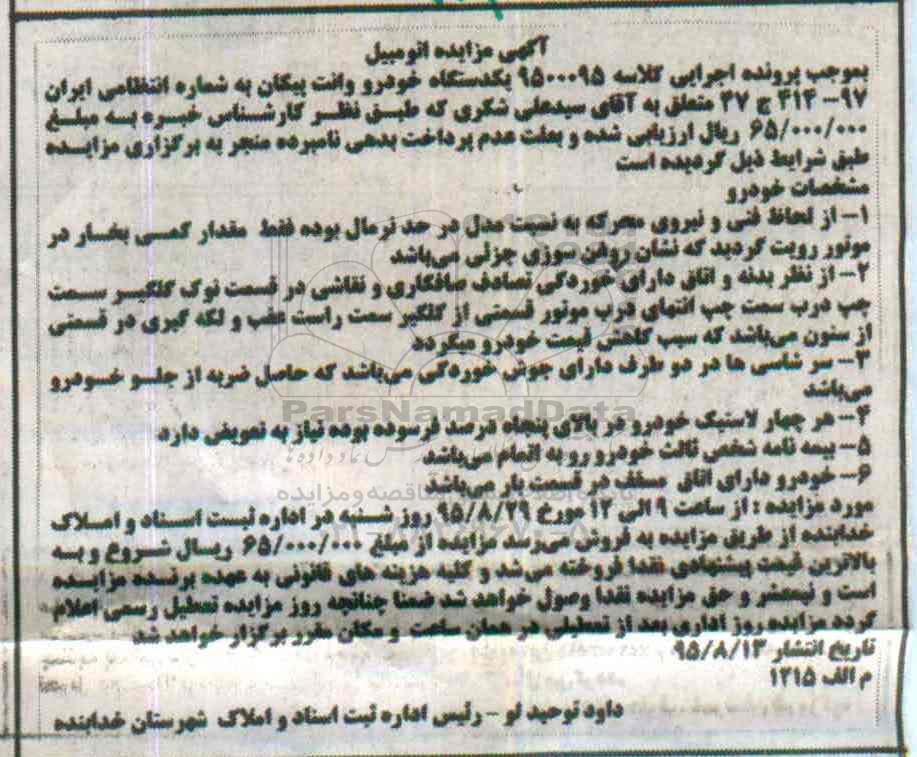 آگهی مزایده اتومبیل
بموجب پرونده اجرایی کلاسه ۹۵۰۰۰۹۵ یکدستگاه خودرو وانت پیکان به شماره انتظامی ایران
۹۷- ۴۱۴ ج ۲۷ متعلق به آقای سیدعلی شکری که طبق نظر کارشناس خبره به مبلغ
۶۵/۰۰۰/۰۰۰ ریال ارزیابی شده و بعلت عدم پرداخت بدهی نامبرده منجر به برگزاری مزایده
طبق شرایط ذیل گردیده است
مشخصات خودرو
۱- از لحاظ فنی و نیروی محرکه به نسبت مدل در حد نرمال بوده فقط مقدار کمی بخار در
موتور رویت گردید که نشان روغن سوزی جزئی می‌باشد
۲- از نظر بدنه و اتاق دارای خوردگی تصادف صافکاری و نقاشی در قسمت نوک گلگیر سمت
چپ درب سمت چپ انتهای درب موتور قسمتی از گلگیر سمت راست عقب و لکه گیری در قسمتی
از ستون می‌باشد که سبب کاهش قیمت خودرو میگردد
۳- سر شاسی ها در دو طرف دارای جوش خوردگی می‌باشد که حاصل ضربه از جلو خودرو
می‌باشد
ParsNamadData
۴- هر چهار لاستیک خودرو در بالای پنجاه درصد فرسوده بوده نیاز به تعویض دارد
۵- بیمه نامه شخص ثالث خودرو رو به اتمام می‌باشد
۶- خودرو دارای اتاق مسقف در قسمت بار می‌باشد
مورد مزایده : از ساعت ۹ الی ۱۲ مورخ ۹۵/۸/۲۹ روز شنبه در اداره ثبت اسناد و املاک
خدابنده از طریق مزایده به فروش می‌رسد مزایده از مبلغ ۶۵/۰۰۰/۰۰۰ ریال شروع و به
بالاترین قیمت پیشنهادی نقدا فروخته می‌شد و کلیه هزینه های قانونی به عهده برنده مزایده
است و نیمعشر و حق مزایده نقدا وصول خواهد شد ضمنا چنانچه روز مزایده تعطیل رسمی اعلام
گردد مزایده روز اداری بعد از تعطیلی در همان ساعت و مکان مقرر برگزار خواهد شد
تاریخ انتشار ۹۵/۸/۱۳
م الف ۱۲۱۵
داود توحید لو - رئیس اداره ثبت اسناد و املاک شهرستان خدابنده